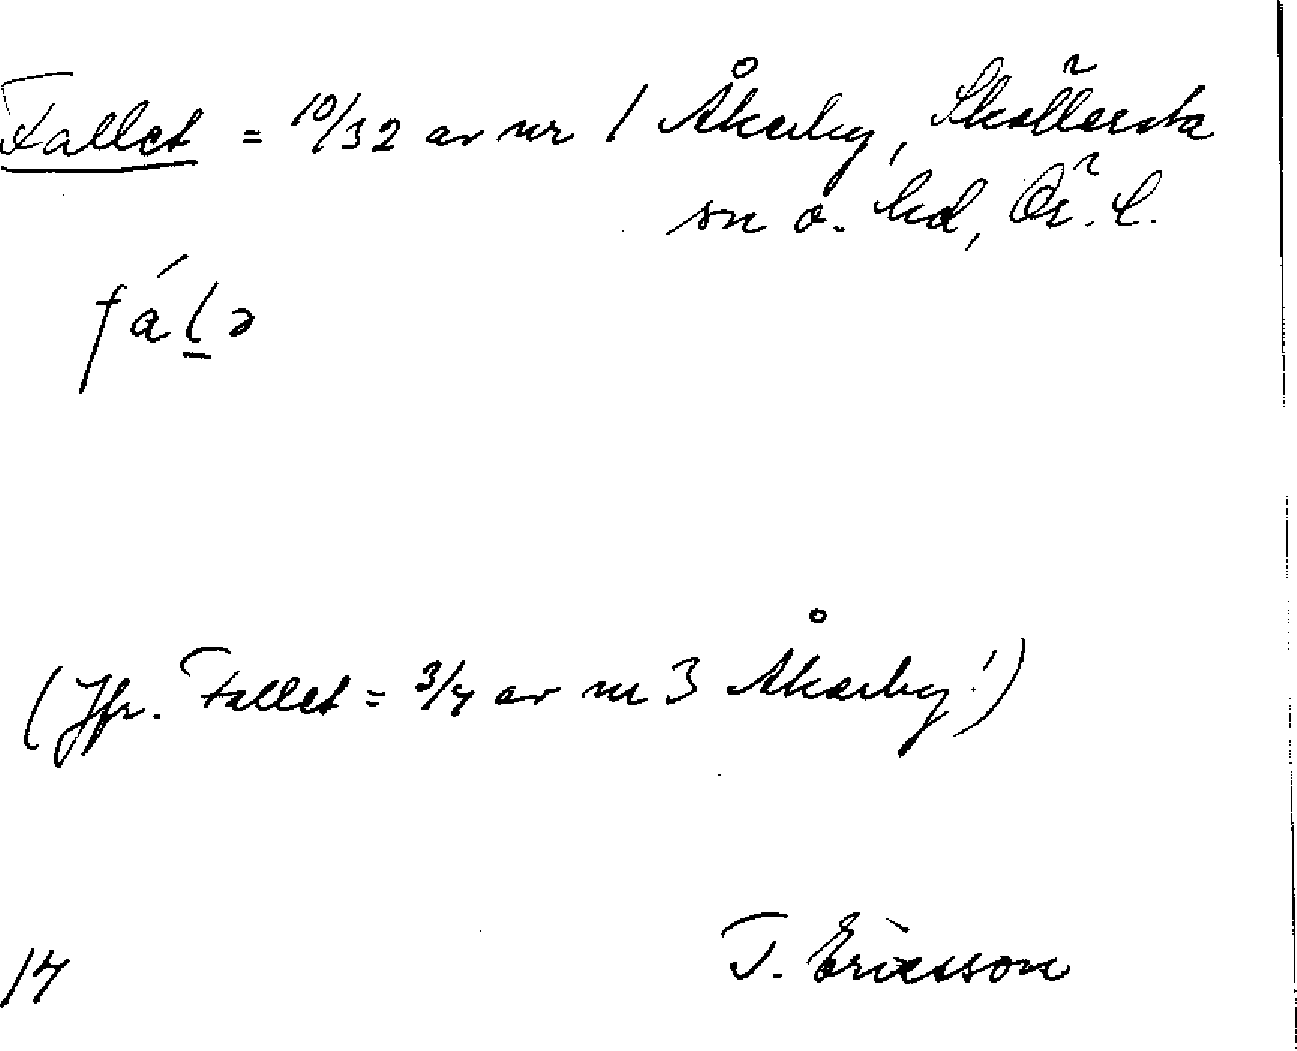 Fallet = 10/32 av nr 1 Åkerby, Sköllersta
sn o. hd, Ör. l.
fáḻə
(Jfr. Fallet = 3/4 av nr 3 Åkerby!)
T. Ericsson
14